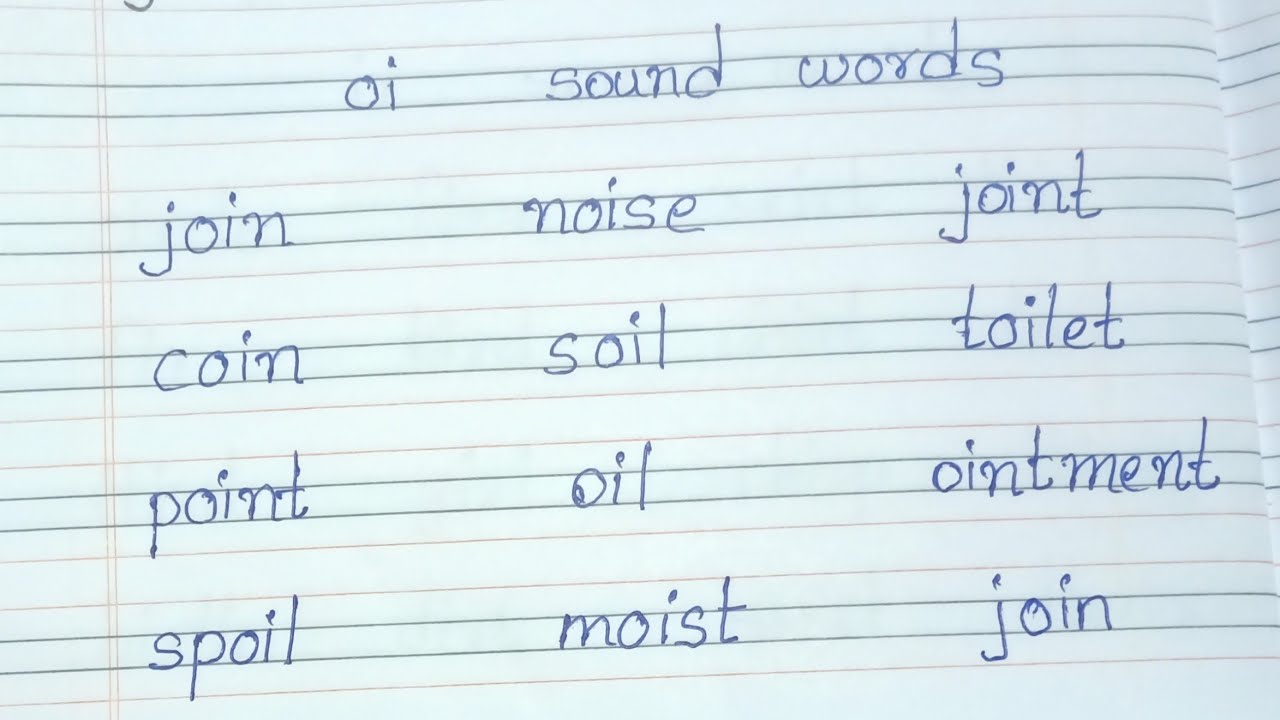 oi sound words
join noise joint
coin soil toilet
point oil ointment
spoil moist join